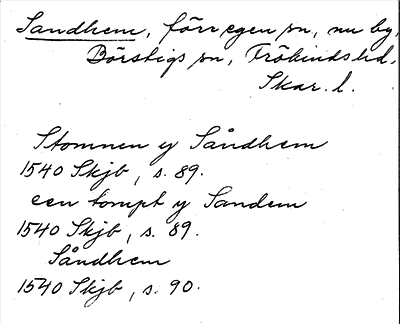 Sandhem, förr egen sn, nu by,
Börstigs sn, Frökinds hd,
Skar. l.
Stomnen y Såndhem
1540 Skjb, s. 89.
een tompt y Sandem
1540 Skjb, s. 89.
Såndhem
1540 Skjb, s. 90.